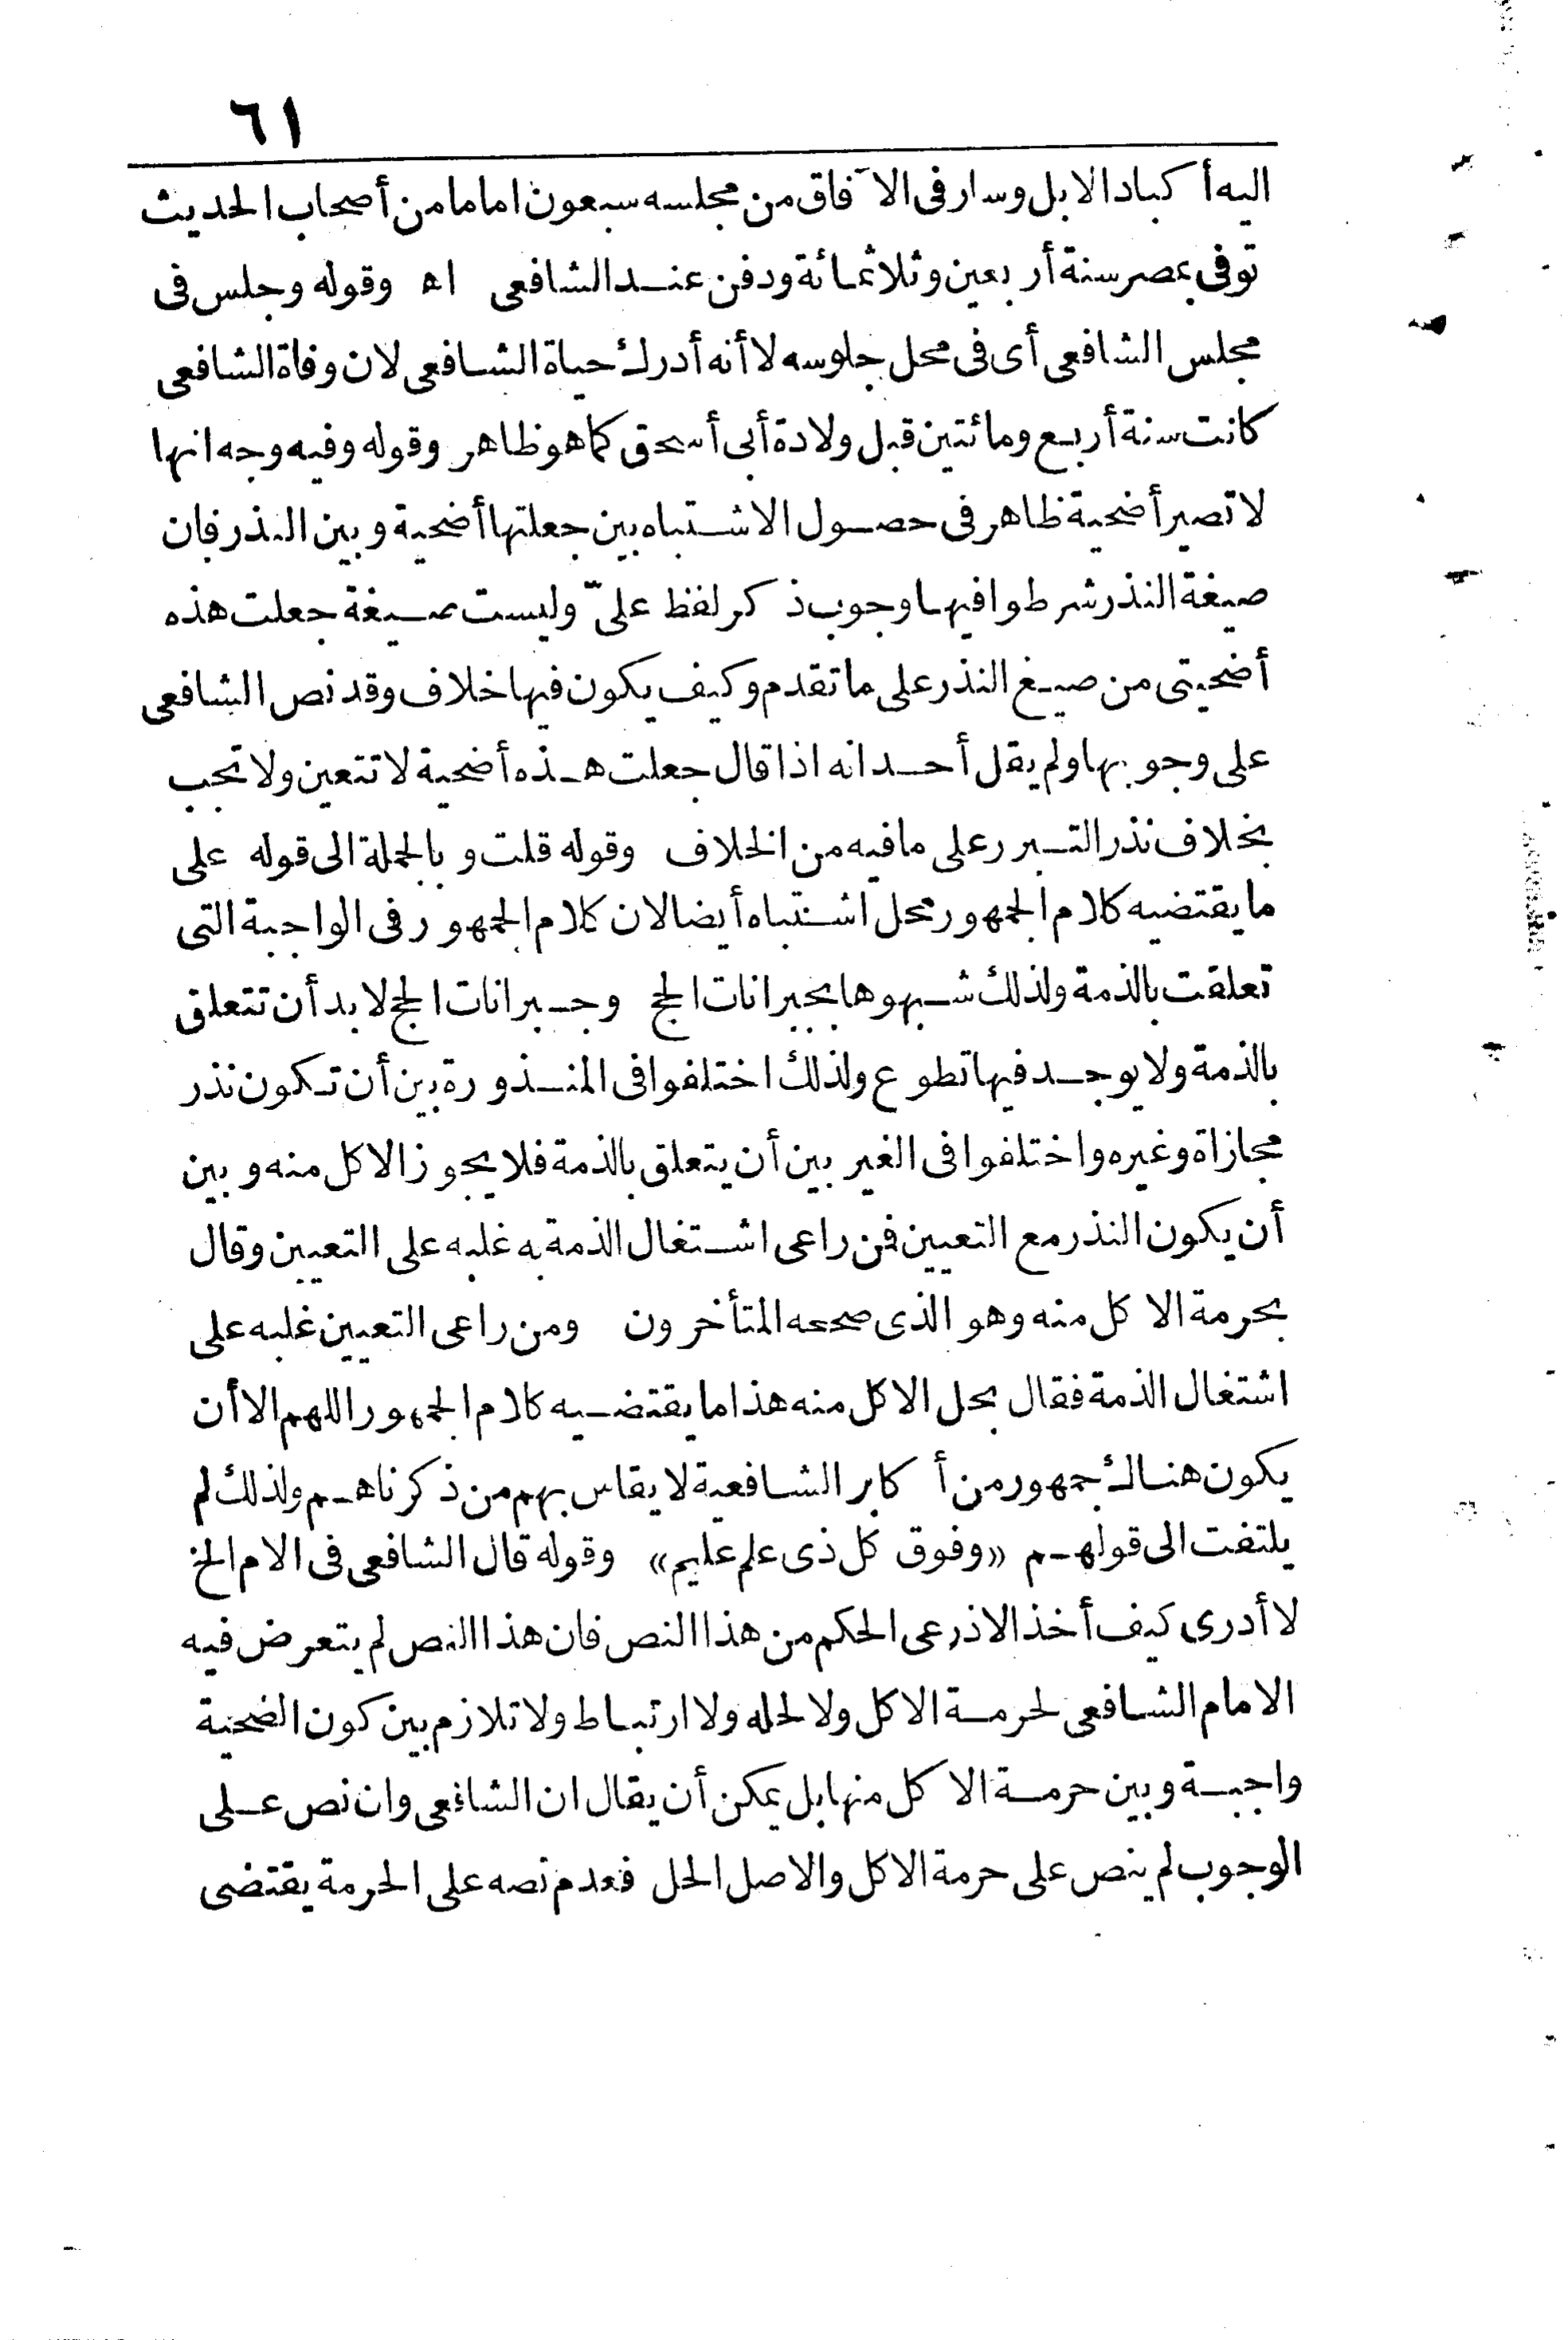 ٦١
اليه أكباد الابل وسار فى الآفاق من مجلسه سبعون اماما من أصحاب الحديث
توفى بمصر سنة أربعين وثلاثمائة ودفن عند الشافعى اه وقوله وجلس فى
مجلس الشافعى أى فى محل جلوسه لا أنه أدرك حياة الشافعى لان وفاة الشافعى
كانت سنة أربع ومائتين قبل ولادة أبى أسحق كما هو ظاهر وقوله وفيه وجه انها
لا تصير أضحية ظاهر فى حصول الاشتباه بين جعلتها أضحية وبين النذر فان
صيغة النذر شرطوا فيها وجوب ذكر لفظ علىّ وليست صيغة جعلت هذه
أضحيتى من صيغ النذر على ما تقدم وكيف يكون فيها خلاف وقد نص الشافعى
على وجوبها ولم يقل أحد انه اذا قال جعلت هذه أضحية لا تتعين ولا تجب
بخلاف نذر التبرر على ما فيه من الخلاف وقوله قلت وبالجملة الى قوله على
ما يقتضيه كلام الجمهور محل اشتباه أيضا لان كلام الجمهور فى الواجبة التى
تعلقت بالذمة ولذلك شبهوها بجبرانات الحج وجبرانات الحج لا بد أن تتعلق
بالذمة ولا يوجد فيها تطوع ولذلك اختلفوا فى المنذورة بين أن تكون نذر
مجازاة وغيره واختلفوا فى الغير بين أن يتعلق بالذمة فلا يجوز الاكل منه وبين
أن يكون النذر مع التعيين فمن راعى اشتغال الذمة به غلبه على التعيين وقال
بحرمة الاكل منه وهو الذى صححه المتأخرون ومن راعى التعيين غلبه على
اشتغال الذمة فقال بحل الاكل منه هذا ما يقتضيه كلام الجمهور اللهم الا أن
يكون هناك جمهور من أكابر الشافعية لا يقاس بهم من ذكرناهم ولذلك لم
يلتفت الى قولهم «وفوق كل ذى علم عليم» وقوله قال الشافعى فى الام الخ
لا أدرى كيف أخذ الاذرعى الحكم من هذا النص فان هذا النص لم يتعرض فيه
الامام الشافعى لحرمة الاكل ولا لحله ولا ارتباط ولا تلازم بين كون الضحية
واجبة وبين حرمة الاكل منها بل يمكن أن يقال ان الشافعى وان نص على
الوجوب لم ينص على حرمة الاكل والاصل الحل فعدم نصه على الحرمة يقتضى